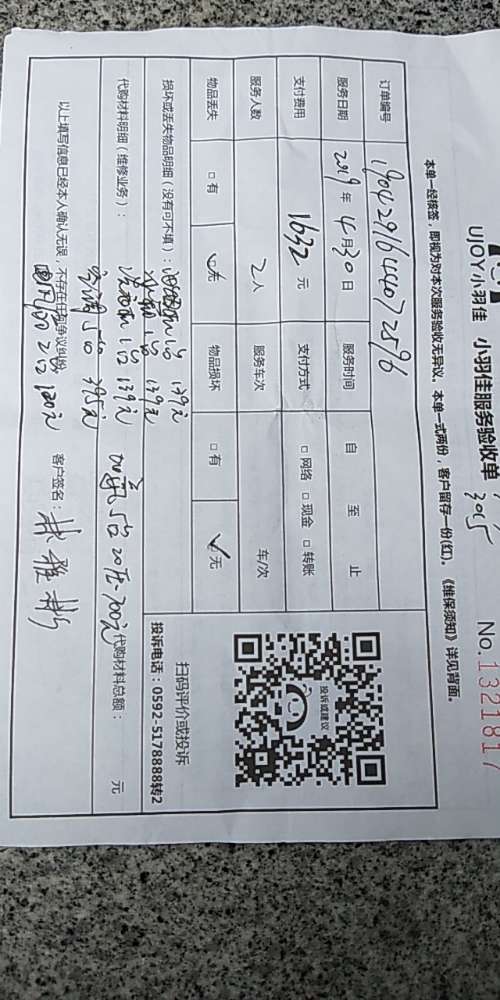 UJOY小羽佳 小羽佳服务验收单
No.1321817
本单一经核签，即视为对本次服务验收无异议。本单一式两份，客户留存一份(红)。《维保须知》详见背面。
订单编号 1904291644072596
服务日期 2019年 4月30日 服务时间 自 至 止
支付费用 1632元 支付方式 □网络 □现金 □转账
服务人数 2人 服务车次 车/次
物品丢失 □有 ☑无 物品损坏 □有 ☑无
损坏或丢失物品明细（没有可不填）： 1台 139元
1台 139元
代购材料明细（维修业务）： 洗衣机 1台 139元
5台 395元 5台 20压 700元 代购材料总额： 元
以上填写信息已经本人确认无误，不存在任何争议纠纷 客户签名：
2台 120元
扫码评价或投诉
投诉电话：0592-5178888转2
投诉或建议